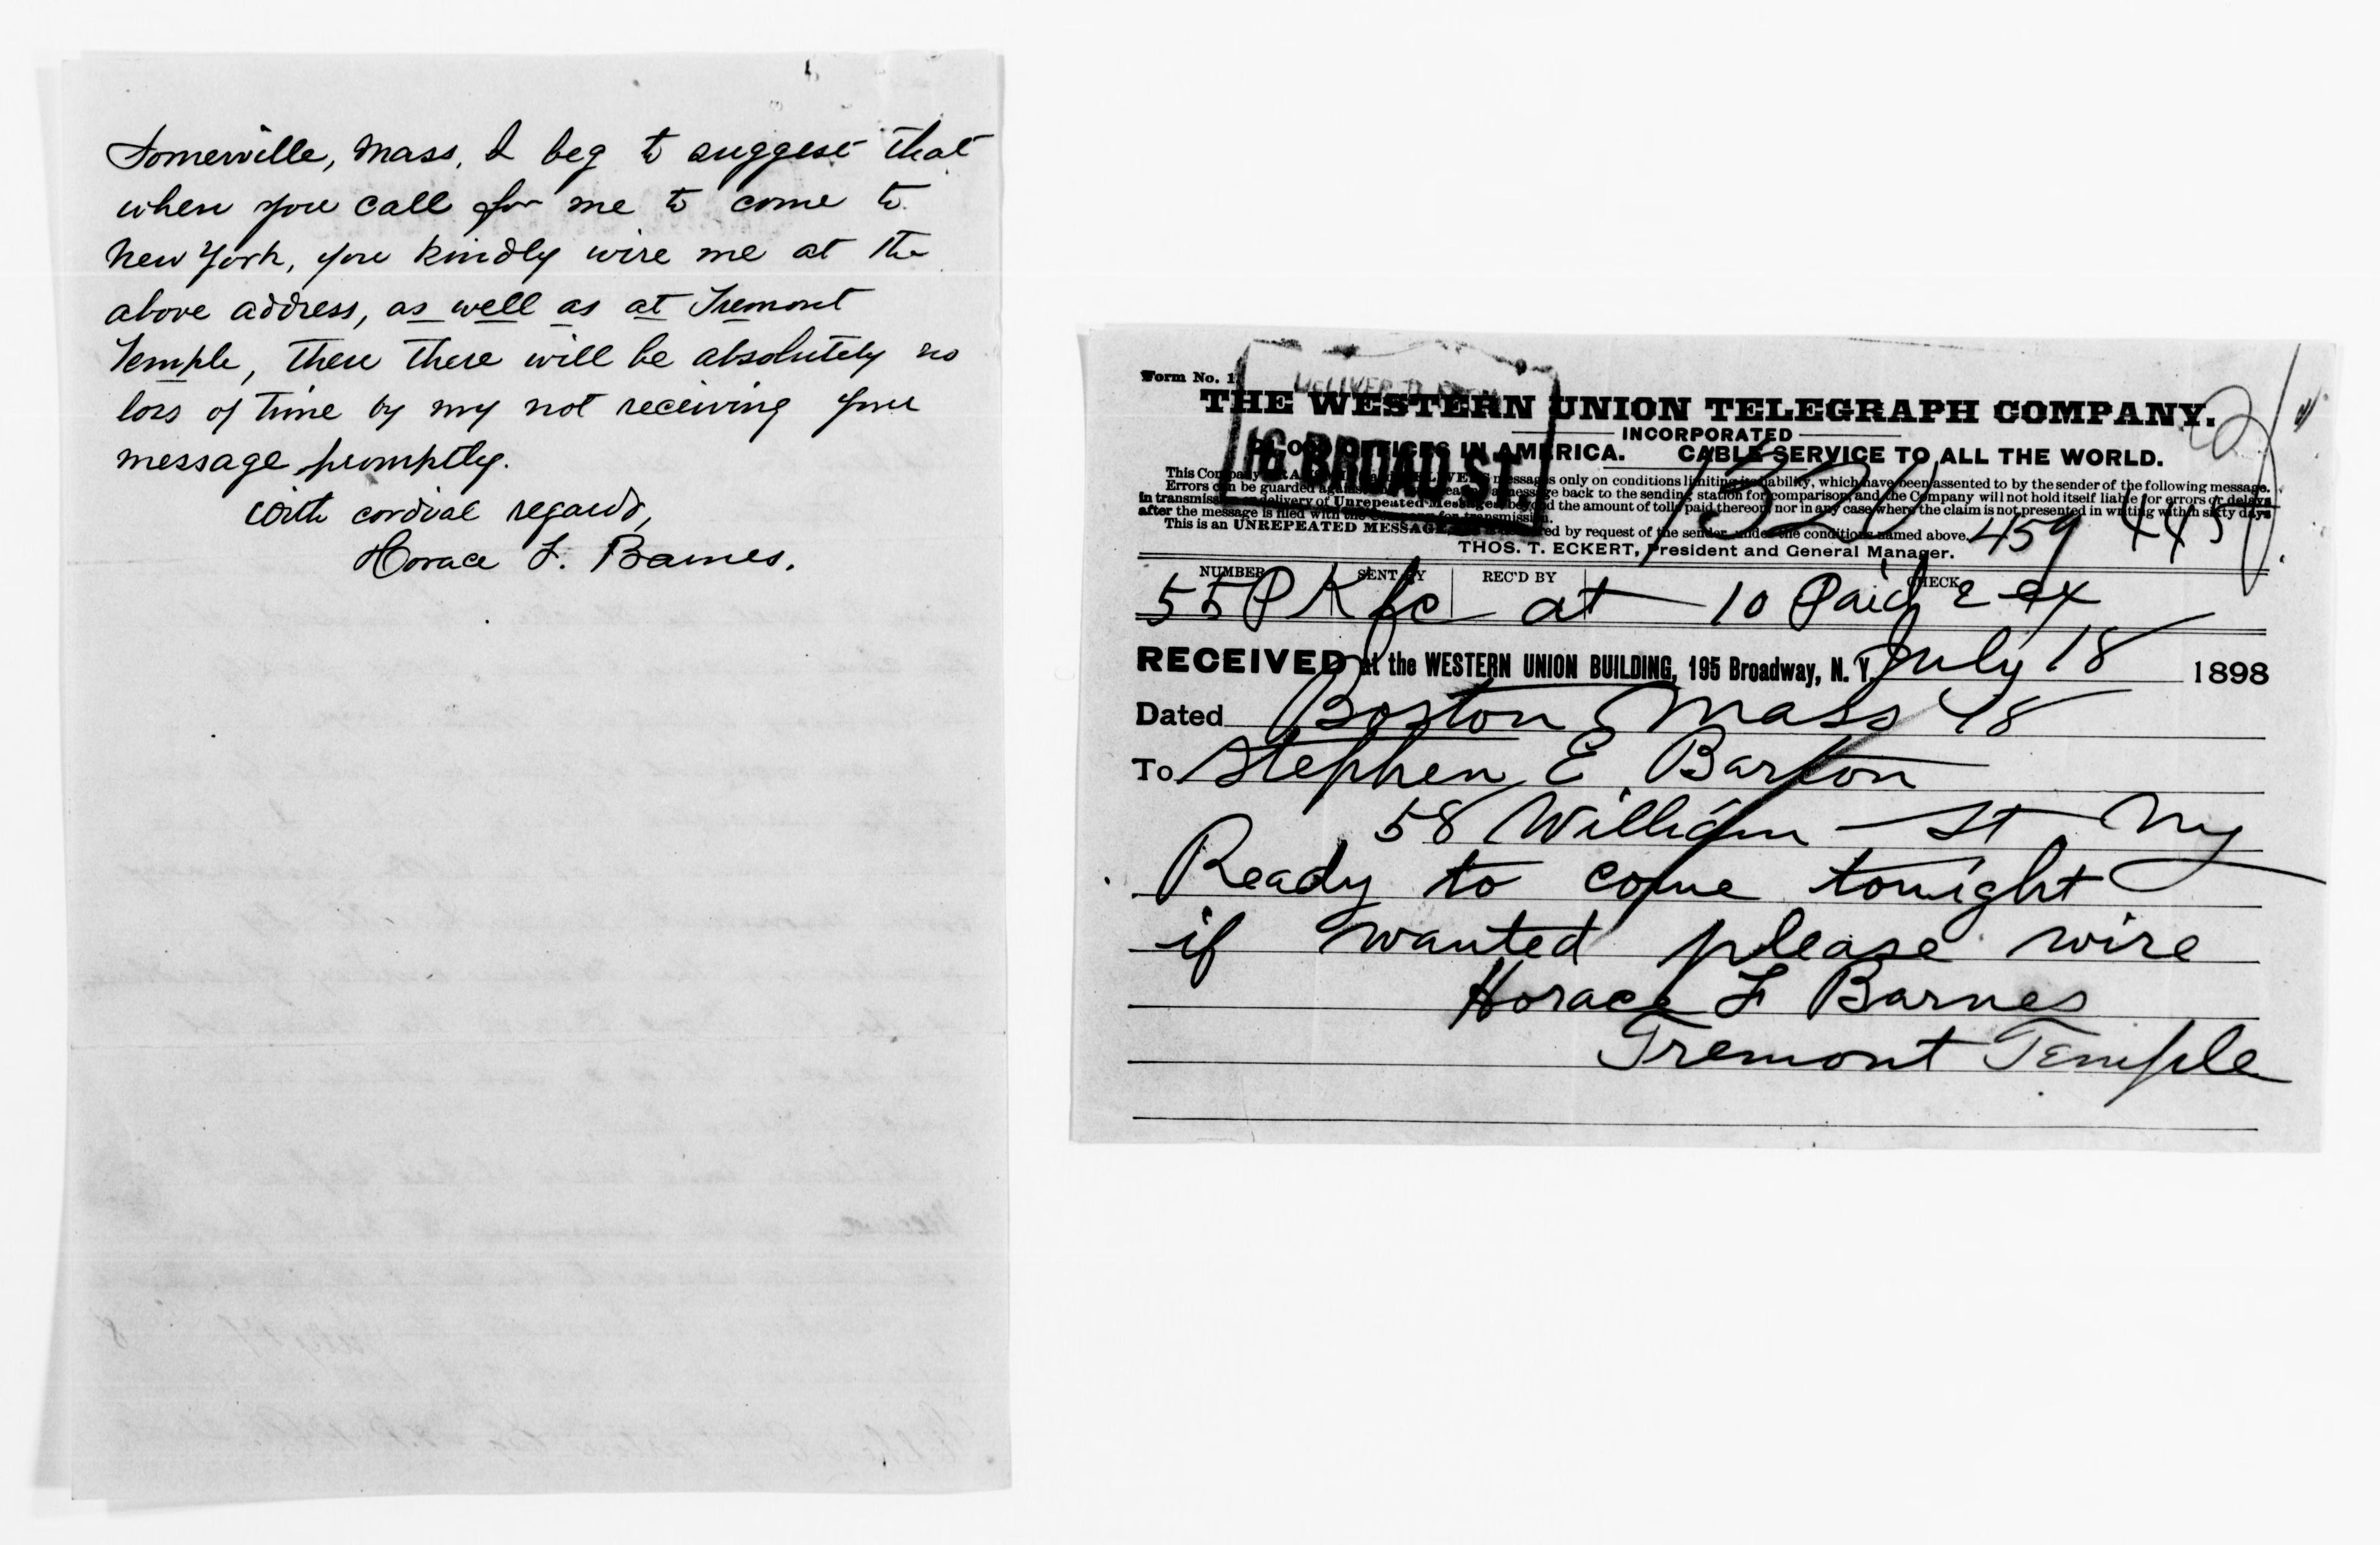 Somerville, Mass, I beg to suggest that
when you call for me to come to
New York, you kindly wire me at the
above address, as well as at Tremont
Temple, then there will be absolutely no
loss of time by my not receiving your
message promptly.
With cordial regards,
Horace F. Barnes.
Form No. 1
THE WESTERN UNION TELEGRAPH COMPANY.
INCORPORATED
OFFICES IN AMERICA. CABLE SERVICE TO ALL THE WORLD.
16 BROAD ST.
This Company messages only on conditions limiting its liability, which have been assented to by the sender of the following message.
Errors can be guarded against message back to the sending station for comparison, and the Company will not hold itself liable for errors or delays
in transmission or delivery of Unrepeated Messages, beyond the amount of tolls paid thereon, nor in any case where the claim is not presented in writing within sixty days
after the message is filed with the Company for transmission.
This is an UNREPEATED MESSAGE, by request of the sender, under the conditions named above.
1320 459 445
THOS. T. ECKERT, President and General Manager.
NUMBER SENT BY REC'D BY CHECK
55 PK fc at 10 Paid
RECEIVED at the WESTERN UNION BUILDING, 195 Broadway, N. Y. July 18 1898
Dated Boston Mass 18
To Stephen E Barton
58 William St Ny
Ready to come tonight
if wanted please wire
Horace F Barnes
Tremont Temple